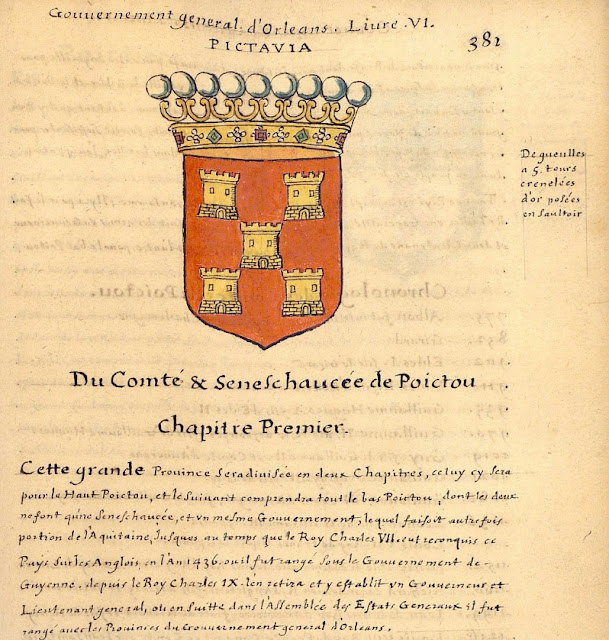 Gouvernement general d'Orleans. Livre. VI.
PICTAVIA
382
De gueulles
a 5. tours
crenelées
d'or posées
en saultoir
Du Comté & Seneschaucée de Poictou
Chapitre Premier.
Cette grande Province sera divisée en deux Chapitres, celuy cy sera
pour le Haut Poictou, et le suivant comprendra tout le bas Poictou, dont les deux
ne font qu'vne Seneschaucée, et vn mesme Gouvernement, lequel faisoit autrefois
portion de l'Aquitaine, Jusques au temps que le Roy Charles VII. eut reconquis ce
Pays sur les Anglois, en l'An 1436. ou il fut rangé sous le Gouvernement de
Guyenne. depuis le Roy Charles IX. l'en retira et y establit vn Gouverneur et
Lieutenant general, où en suitte dans l'Assemblée des Estats Generaux il fut
rangé avec les Provinces du Gouvernement general d'Orleans.